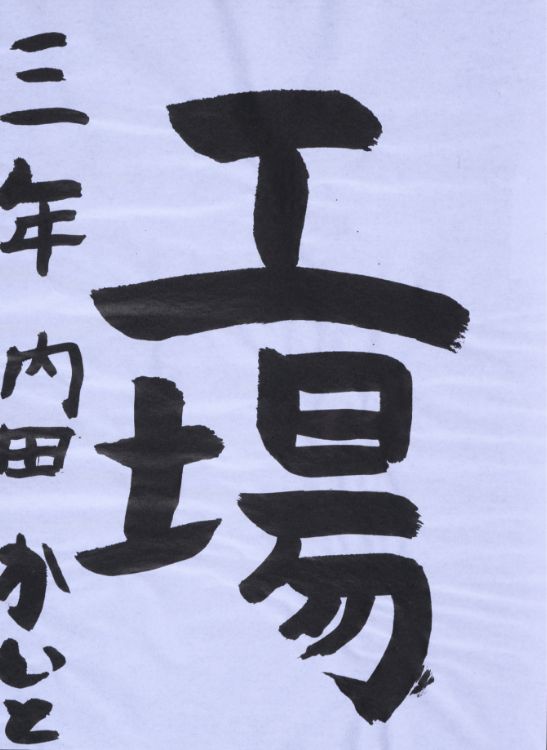 工場
三年 内田かいと